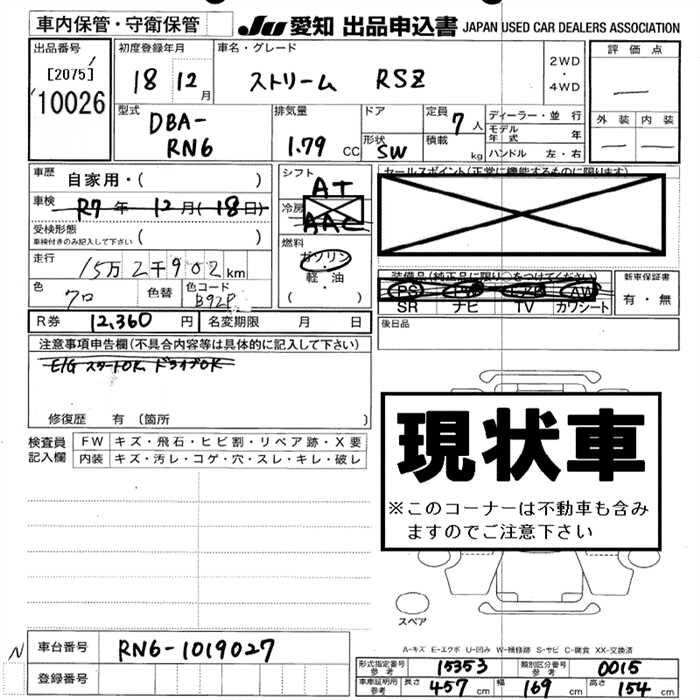 車内保管・守衛保管 JU 愛知 出品申込書 JAPAN USED CAR DEALERS ASSOCIATION
出品番号 初度登録年月 車名・グレード 2WD・4WD 評価点
[2075] 18 12月 ストリーム RSZ ―
10026
型式 排気量 ドア 定員 7人 ディーラー・並行 外装 内装
DBA- 形状 積載 モデル年式 年 ― ―
RN6 1.79 CC SW kg ハンドル 左・右
車歴 自家用・( ) シフト AT セールスポイント(正常に機能するものに限ります)
車検 R7年 12月(18日) 冷房 AAC
受検形態 ( )
車検付きのみ記入して下さい
燃料 ガソリン・軽油 ( )
走行 15万2千902km
装備品(純正品に限り○をつけてください) 新車保証書
色 クロ 色替 色コード B92P PS AW 有・無
SR ナビ TV カワシート
R券 12,360 円 名変期限 月 日 後日品
注意事項申告欄(不具合内容等は具体的に記入して下さい)
E/G スタートOK ドライブOK
修復歴 有 (箇所 )
現状車
※このコーナーは不動車も含み
ますのでご注意下さい
検査員記入欄 FW キズ・飛石・ヒビ割・リペア跡・X要
内装 キズ・汚レ・コゲ・穴・スレ・キレ・破レ
スペア
A-キズ E-エクボ U-凹み W-補修跡 S-サビ C-腐食 XX-交換済
N 車台番号 RN6-1019027
登録番号
形式指定番号 参考 15353 類別区分番号 参考 0015
車庫証明用 参考 長さ 457 cm 幅 169 cm 高さ 154 cm